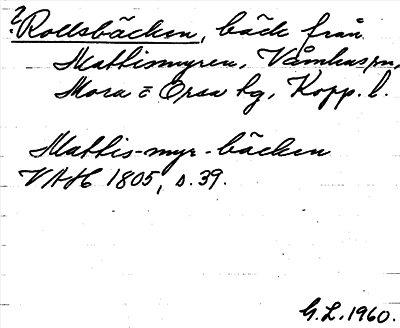 ? Rollsbäcken, bäck från
Mattismyren, Våmhus sn,
Mora o Orsa tg, Kopp. l.
Mattis-myr-bäcken
VAH 1805, s. 39.
G.L. 1960.